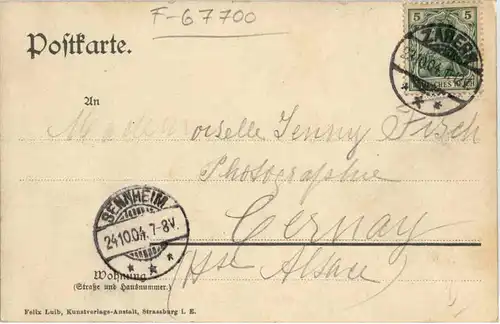 F-67700
Postkarte.
5 5
ZABERN
24.10.04. 7
DEUTSCHES REICH
An
Mademoiselle Jenny Fisch
Photographie
Cernay
SENNHEIM.
24.10.04. 7-8V.
Alsace
Wohnung
(Straße und Hausnummer.)
Felix Luib, Kunstverlags-Anstalt, Strassburg i. E.